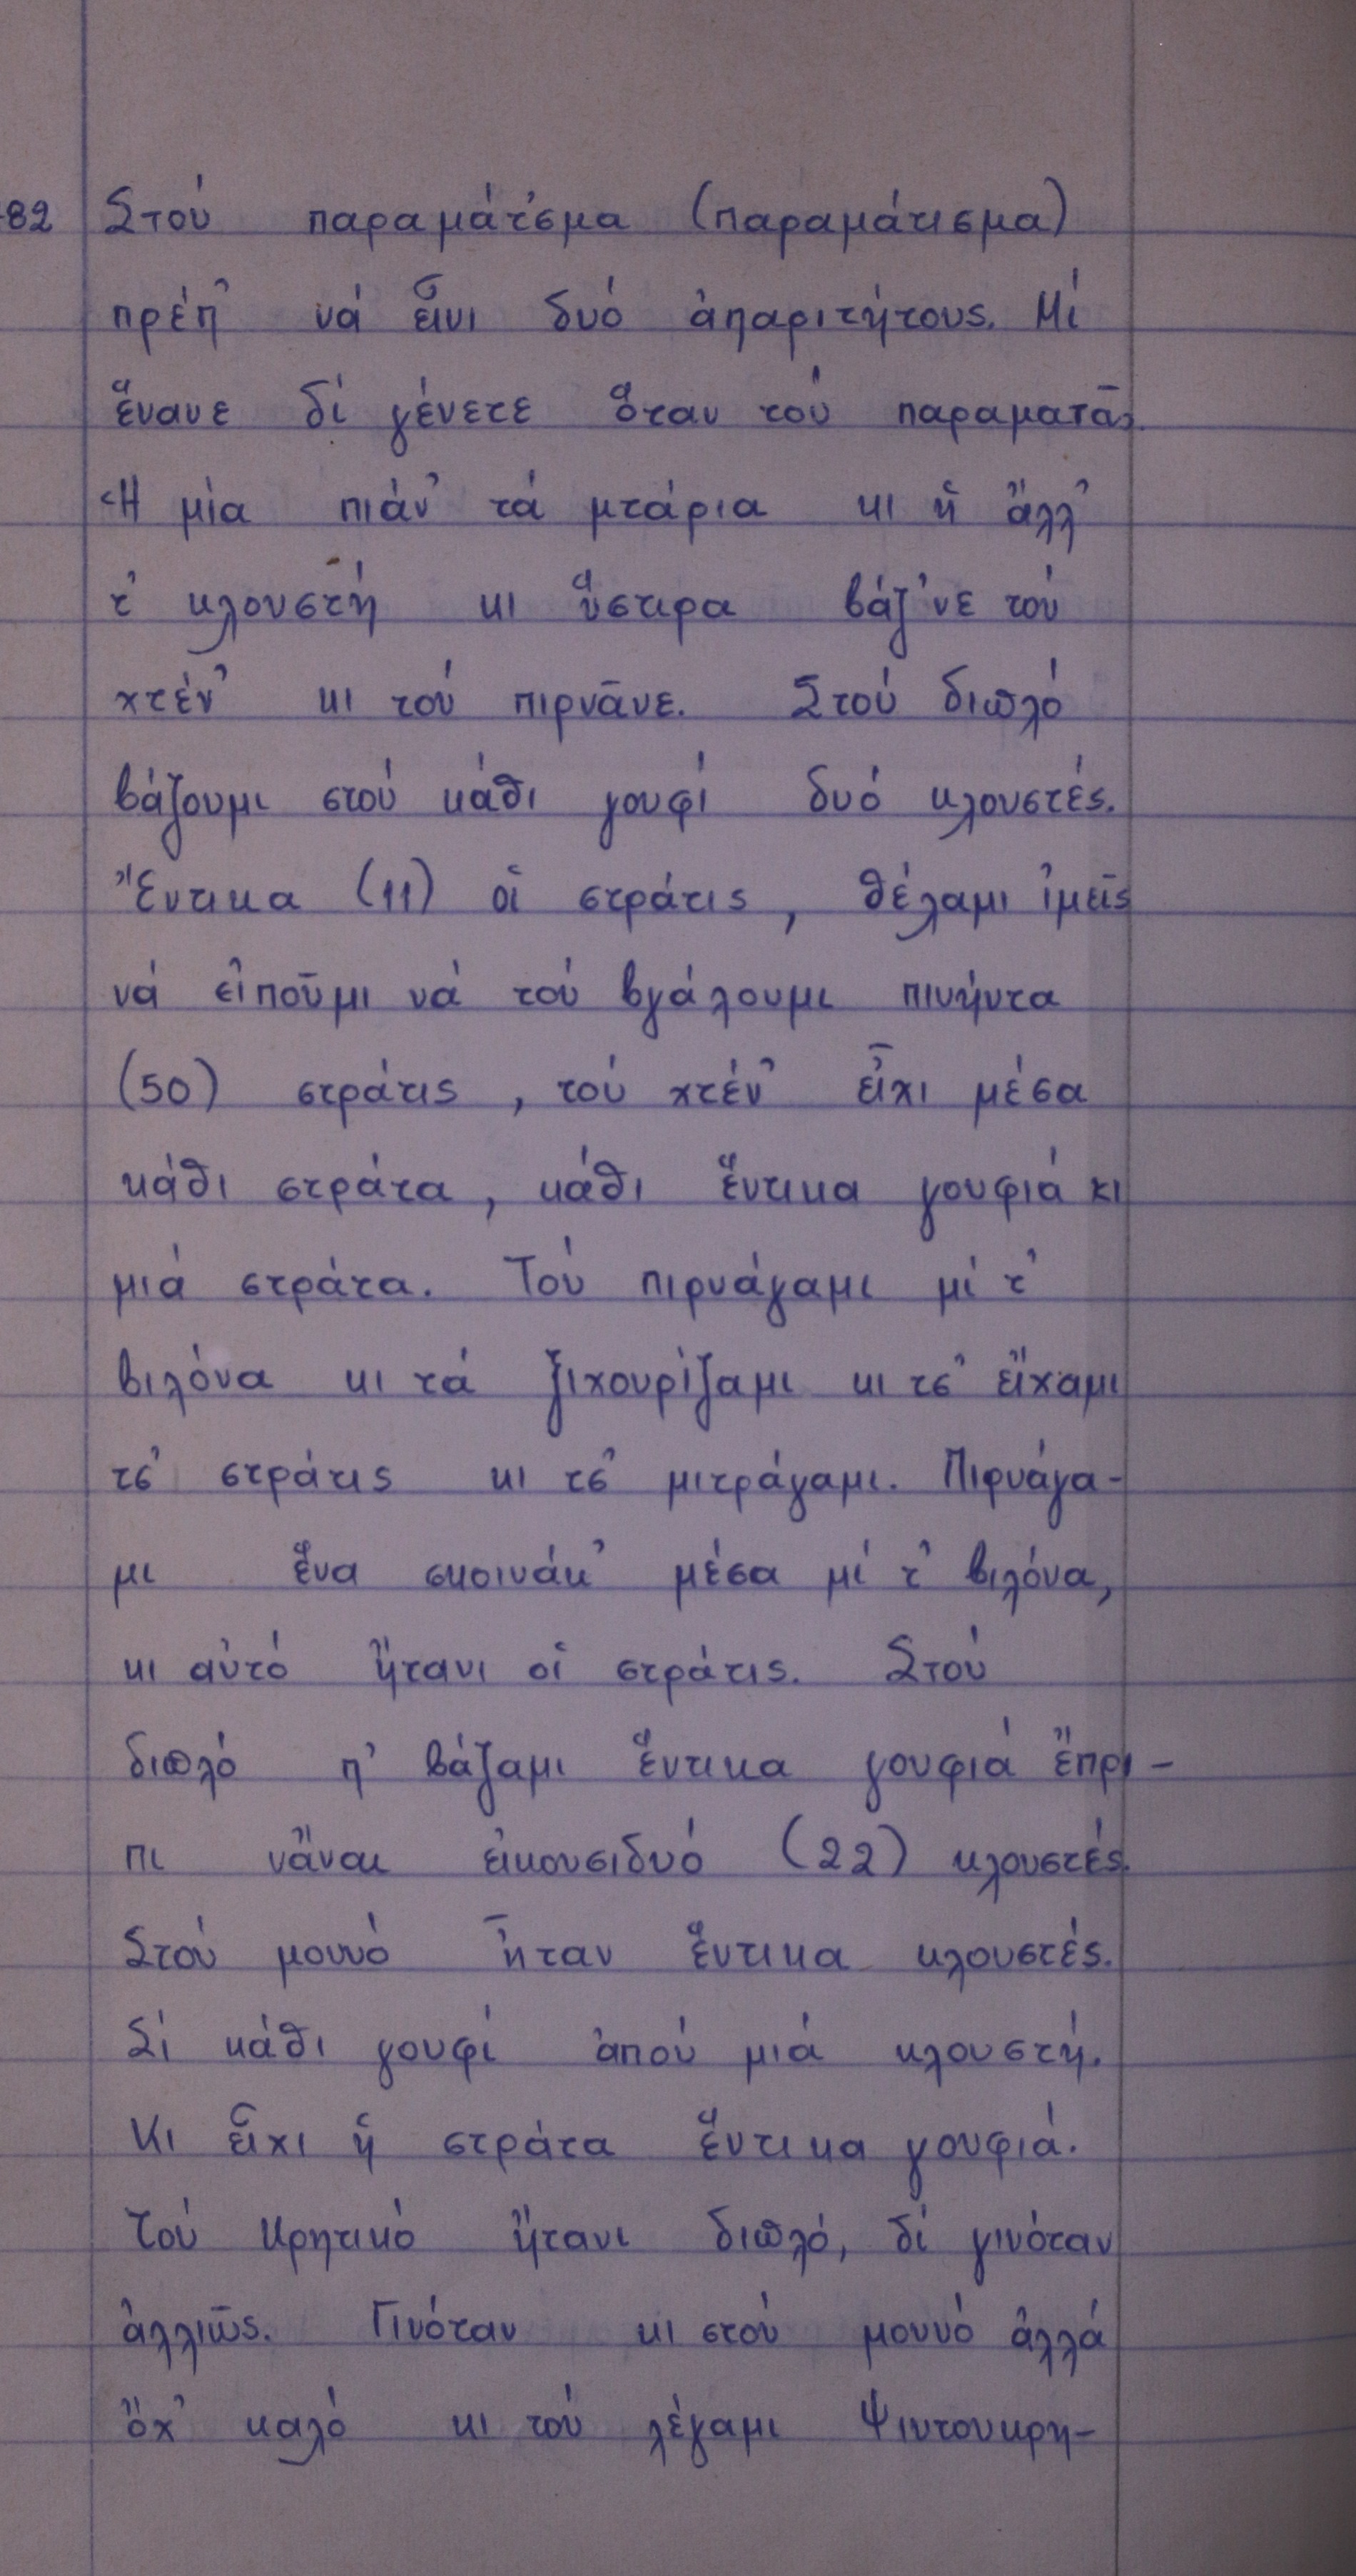 82 Στού παραμάτ'σμα (παραμάτισμα)
πρέπ' νά εἶνι δυό ἀπαριτήτους. Μί
ἕνανε δί γένετε ὅταν τού παραματᾶς.
Ἡ μία πιάν' τά μτάρια κι ἡ ἄλλ'
τ' κλουστή κι ὕστιρα βάζ'νε τού
χτέν' κι τού πιρνᾶνε. Στού διπλό
βάζουμι στού κάθι γουφί δυό κλουστές.
Ἔντικα (11) οἱ στράτις, θέλαμι ἰμεῖς
νά εἰποῦμι νά τού βγάλουμι πινήντα
(50) στράτις, τού χτέν' εἶχι μέσα
κάθι στράτα, κάθι ἕντικα γουφιά κι
μιά στράτα. Τού πιρνάγαμι μί τ'
βιλόνα κι τά ξιχουρίζαμι κι τσ' εἴχαμι
τσ' στράτις κι τσ' μιτράγαμι. Πιρνάγα-
μι ἕνα σκοινάκ' μέσα μί τ' βιλόνα,
κι αὐτό ἤτανι οἱ στράτις. Στού
διπλό π' βάζαμι ἕντικα γουφιά ἔπρι-
πι νἄναι εἰκουσιδυό (22) κλουστές.
Στού μουνό ἦταν ἕντικα κλουστές.
Σί κάθι γουφί ἀπού μιά κλουστή.
Κι εἶχι ἡ στράτα ἕντικα γουφιά.
Τού κρητικό ἤτανι διπλό, δί γινόταν
ἀλλιῶς. Γινόταν κι στού μουνό ἀλλά
ὄχ' καλό κι τού λέγαμι Ψιυτουκρη-